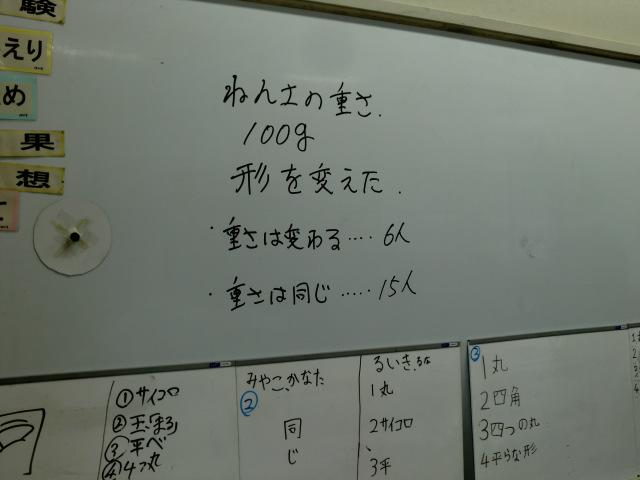 験
えり
め
果
想
ねん土の重さ.
100g
形を変えた.
・重さは変わる‥‥6人
・重さは同じ‥‥‥15人
①サイコロ
②玉(まる)
③平べ
④4つ丸
みやこ、かなた
②
同じ
るいき、るな
1丸
2サイコロ
3平
②
1丸
2四角
3四つの丸
4平らな形